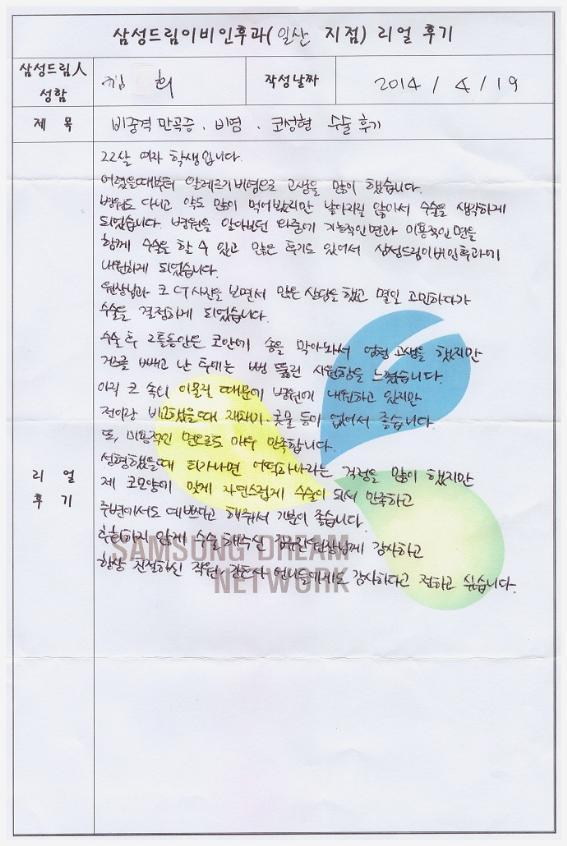 삼성드림이비인후과(일산 지점) 리얼 후기
삼성드림人 성함
김 희
작성날짜
2014 / 4 / 19
제 목
비중격 만곡증. 비염. 코성형 수술 후기
리 얼 후 기
22살 여자 학생입니다.
어렸을때부터 알레르기비염으로 고생을 많이 했습니다.
병원도 다니고 약도 많이 먹어봤지만 낳아지질 않아서 수술을 생각하게
되었습니다. 병원을 알아보던 와중에 기능적인면과 미용적인면을
함께 수술도 할 수 있고 많은 후기도 있어서 삼성드림이비인후과에
내원하게 되었습니다.
원장님과 코 CT사진을 보면서 많은 상담도 했고 몇일 고민하다가
수술을 결정하게 되었습니다.
수술 후 2틀동안은 코안에 솜을 막아놔서 엄청 고생을 했지만
그것을 빼고 난 후에는 뻥 뚫린 시원함을 느꼈습니다.
아직 코 속이 아물질 때문에 병원에 내원하고 있지만
전이랑 비교했을때 재채기. 콧물 등이 없어서 좋습니다.
또, 미용적인 면으로도 아주 만족합니다.
성형했을때 티가나면 어떡하나라는 걱정을 많이 했지만
제 코모양에 맞게 자연스럽게 수술이 되서 만족하고
주변에서도 예쁘다고 해줘서 기분이 좋습니다.
후회하지 않게 수술해주신 원장님께 감사하고
항상 친절하신 직원, 간호사 언니들에게도 감사하다고 전하고 싶습니다.
SAMSUNG DREAM
NETWORK